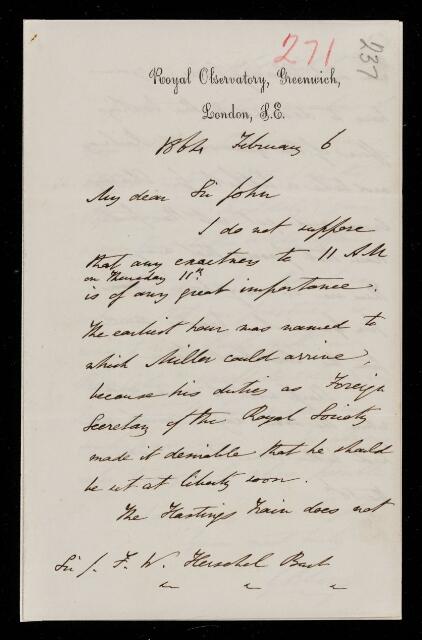 271
237
Royal Observatory, Greenwich,
London, S.E.
1864 February 6
My dear Sir John
I do not suppose
that any exactness to 11 AM
on Thursday 11th
is of any great importance.
The earliest hour was named to
which Miller could arrive,
because his duties as Foreign
Secretary of the Royal Society
made it desirable that he should
be set at liberty soon.
The Hastings train does not
Sir J. F. W. Herschel Bart
" " "